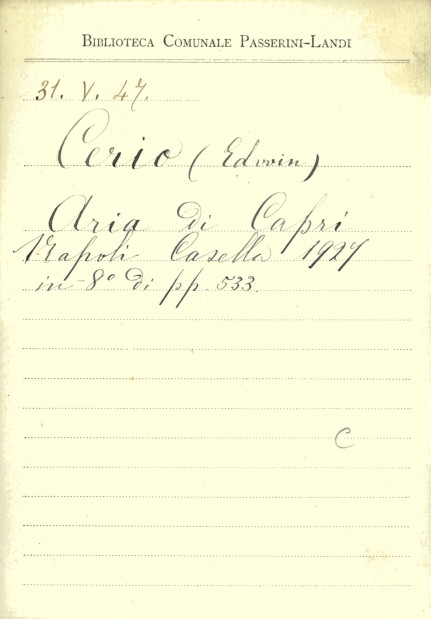 BIBLIOTECA COMUNALE PASSERINI-LANDI
31. V. 47.
Cerio (Edwin)
Aria di Capri
Napoli Casella 1927
in-8° di pp. 533.
C